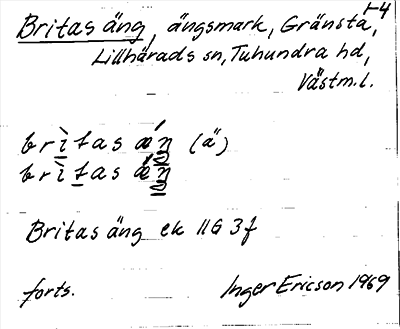 1-4
Britas äng, ängsmark, Gränsta,
Lillhärads sn, Tuhundra hd,
Västm.l.
brìtas ǽŋ (ä)
brìtas ǽŋ
Britas äng ek 11G 3f
forts. Inger Ericson 1969